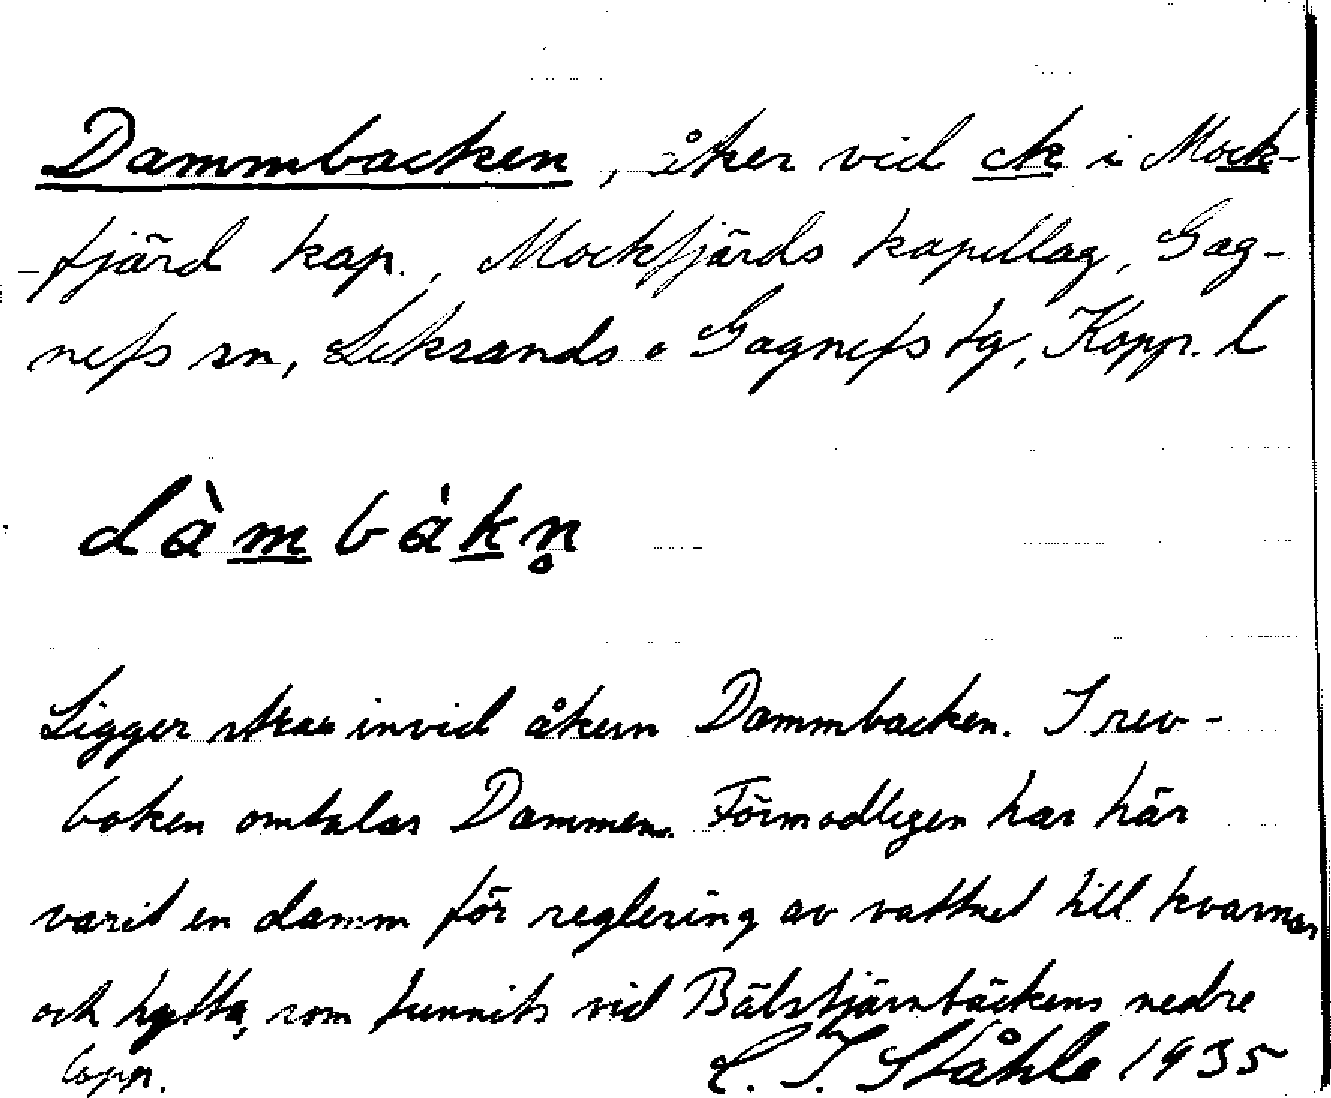 Dammbacken, åker vid ck i Mock-
fjärd kap., Mockfjärds kapellag, Gag-
nefs sn, Leksands o Gagnefs tg, Kopp. l
dàmbàkn̥
Ligger strax invid åkern Dammbacken. I rev-
boken omtalas Dammen. Förmodligen har här
varit en damm för reglering av vattnet till kvarnar
och hytta, som funnits vid Bälstjärnbäckens nedre
lopp.
C. I. Ståhle 1935